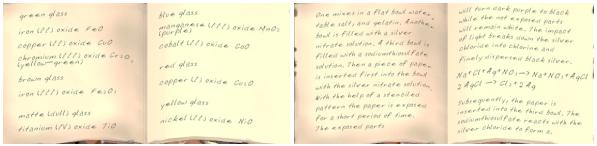 green glass
iron (II) oxide FeO
copper (II) oxide CuO
chromium (III) oxide Cr₂O₃
(yellow-green)
brown glass
iron (III) oxide Fe₂O₃
matte (dull) glass
titanium (IV) oxide TiO
blue glass
manganese (III) oxide MnO₂
(purple)
cobalt (II) oxide CoO
red glass
copper (I) oxide Cu₂O
yellow glass
nickel (II) oxide NiO
One mixes in a flat bowl water,
table salt, and gelatin. Another
bowl is filled with a silver
nitrate solution. A third bowl is
filled with a sodiumthiosulfate
solution. Then a piece of paper
is inserted first into the bowl
with the silver nitrate solution.
With the help of a stenciled
pattern the paper is exposed
for a short period of time.
The exposed parts
will turn dark purple to black
while the not exposed parts
will remain white. The impact
of light breaks down the silver
chloride into chlorine and
finely dispersed black silver.
Na⁺Cl⁻+Ag⁺NO₃⁻→Na⁺NO₃⁻+AgCl
2 AgCl → Cl₂+2 Ag
Subsequently, the paper is
inserted into the third bowl. The
sodiumthiosulfate reacts with the
silver chloride to form a